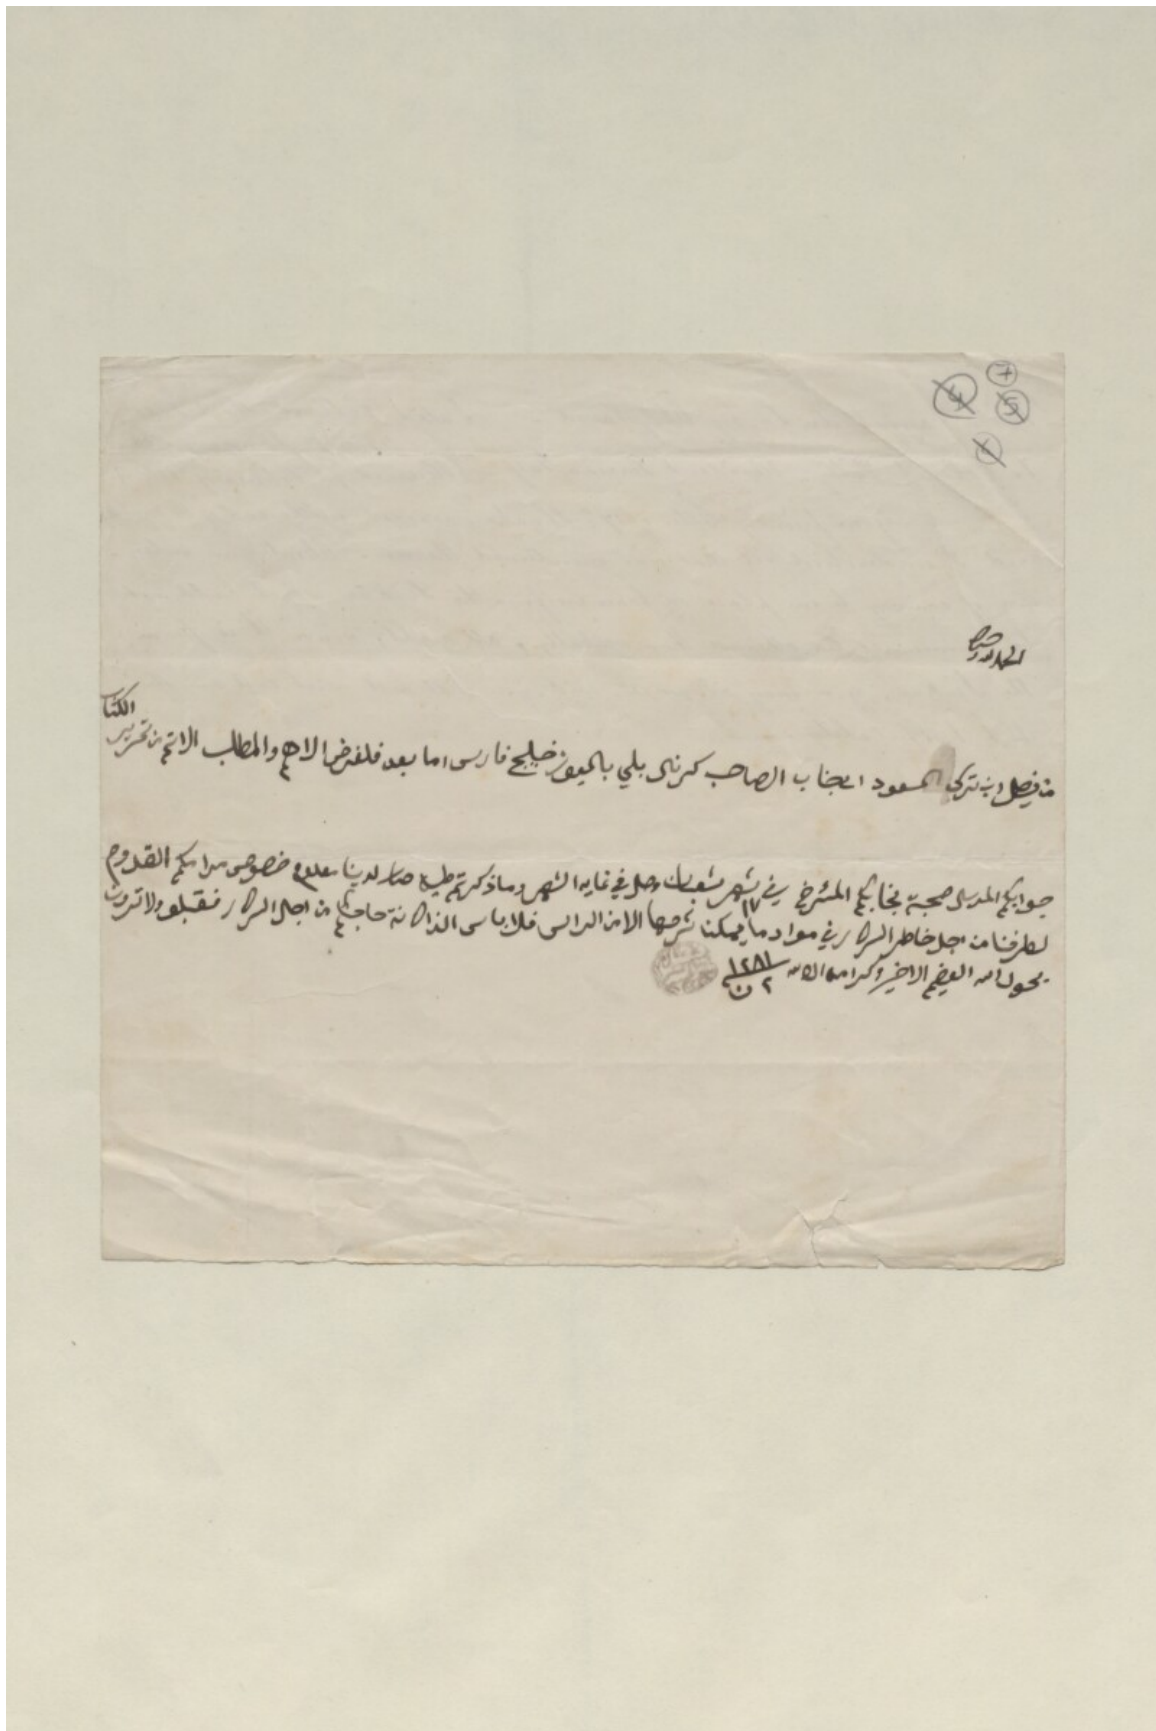 7
5
4
الحمد لله وحده
من فيصل ابن تركي السعود الى جناب الصاحب كرنل بلي باليوز خليج فارس اما بعد فلغرض الاهم والمطلب الاتم من تحرير الكتاب
جوابكم المرسل صحبة نجابكم المئرخ في ١٧ شهر شعبان وصل في غاية الشهر وما ذكرتم طيه صار لدينا معلوم خصوص مرامكم القدوم
لطرفنا من اجل خاطر السركار في مواد ما يمكننا شرحها الا من الراس فلا باس الذا كانة حاجتكم من اجل السركار فتقبلو ولا ترون
بحول الله الا الخير وكرامه والسلام ١٢٨١
٢ ن